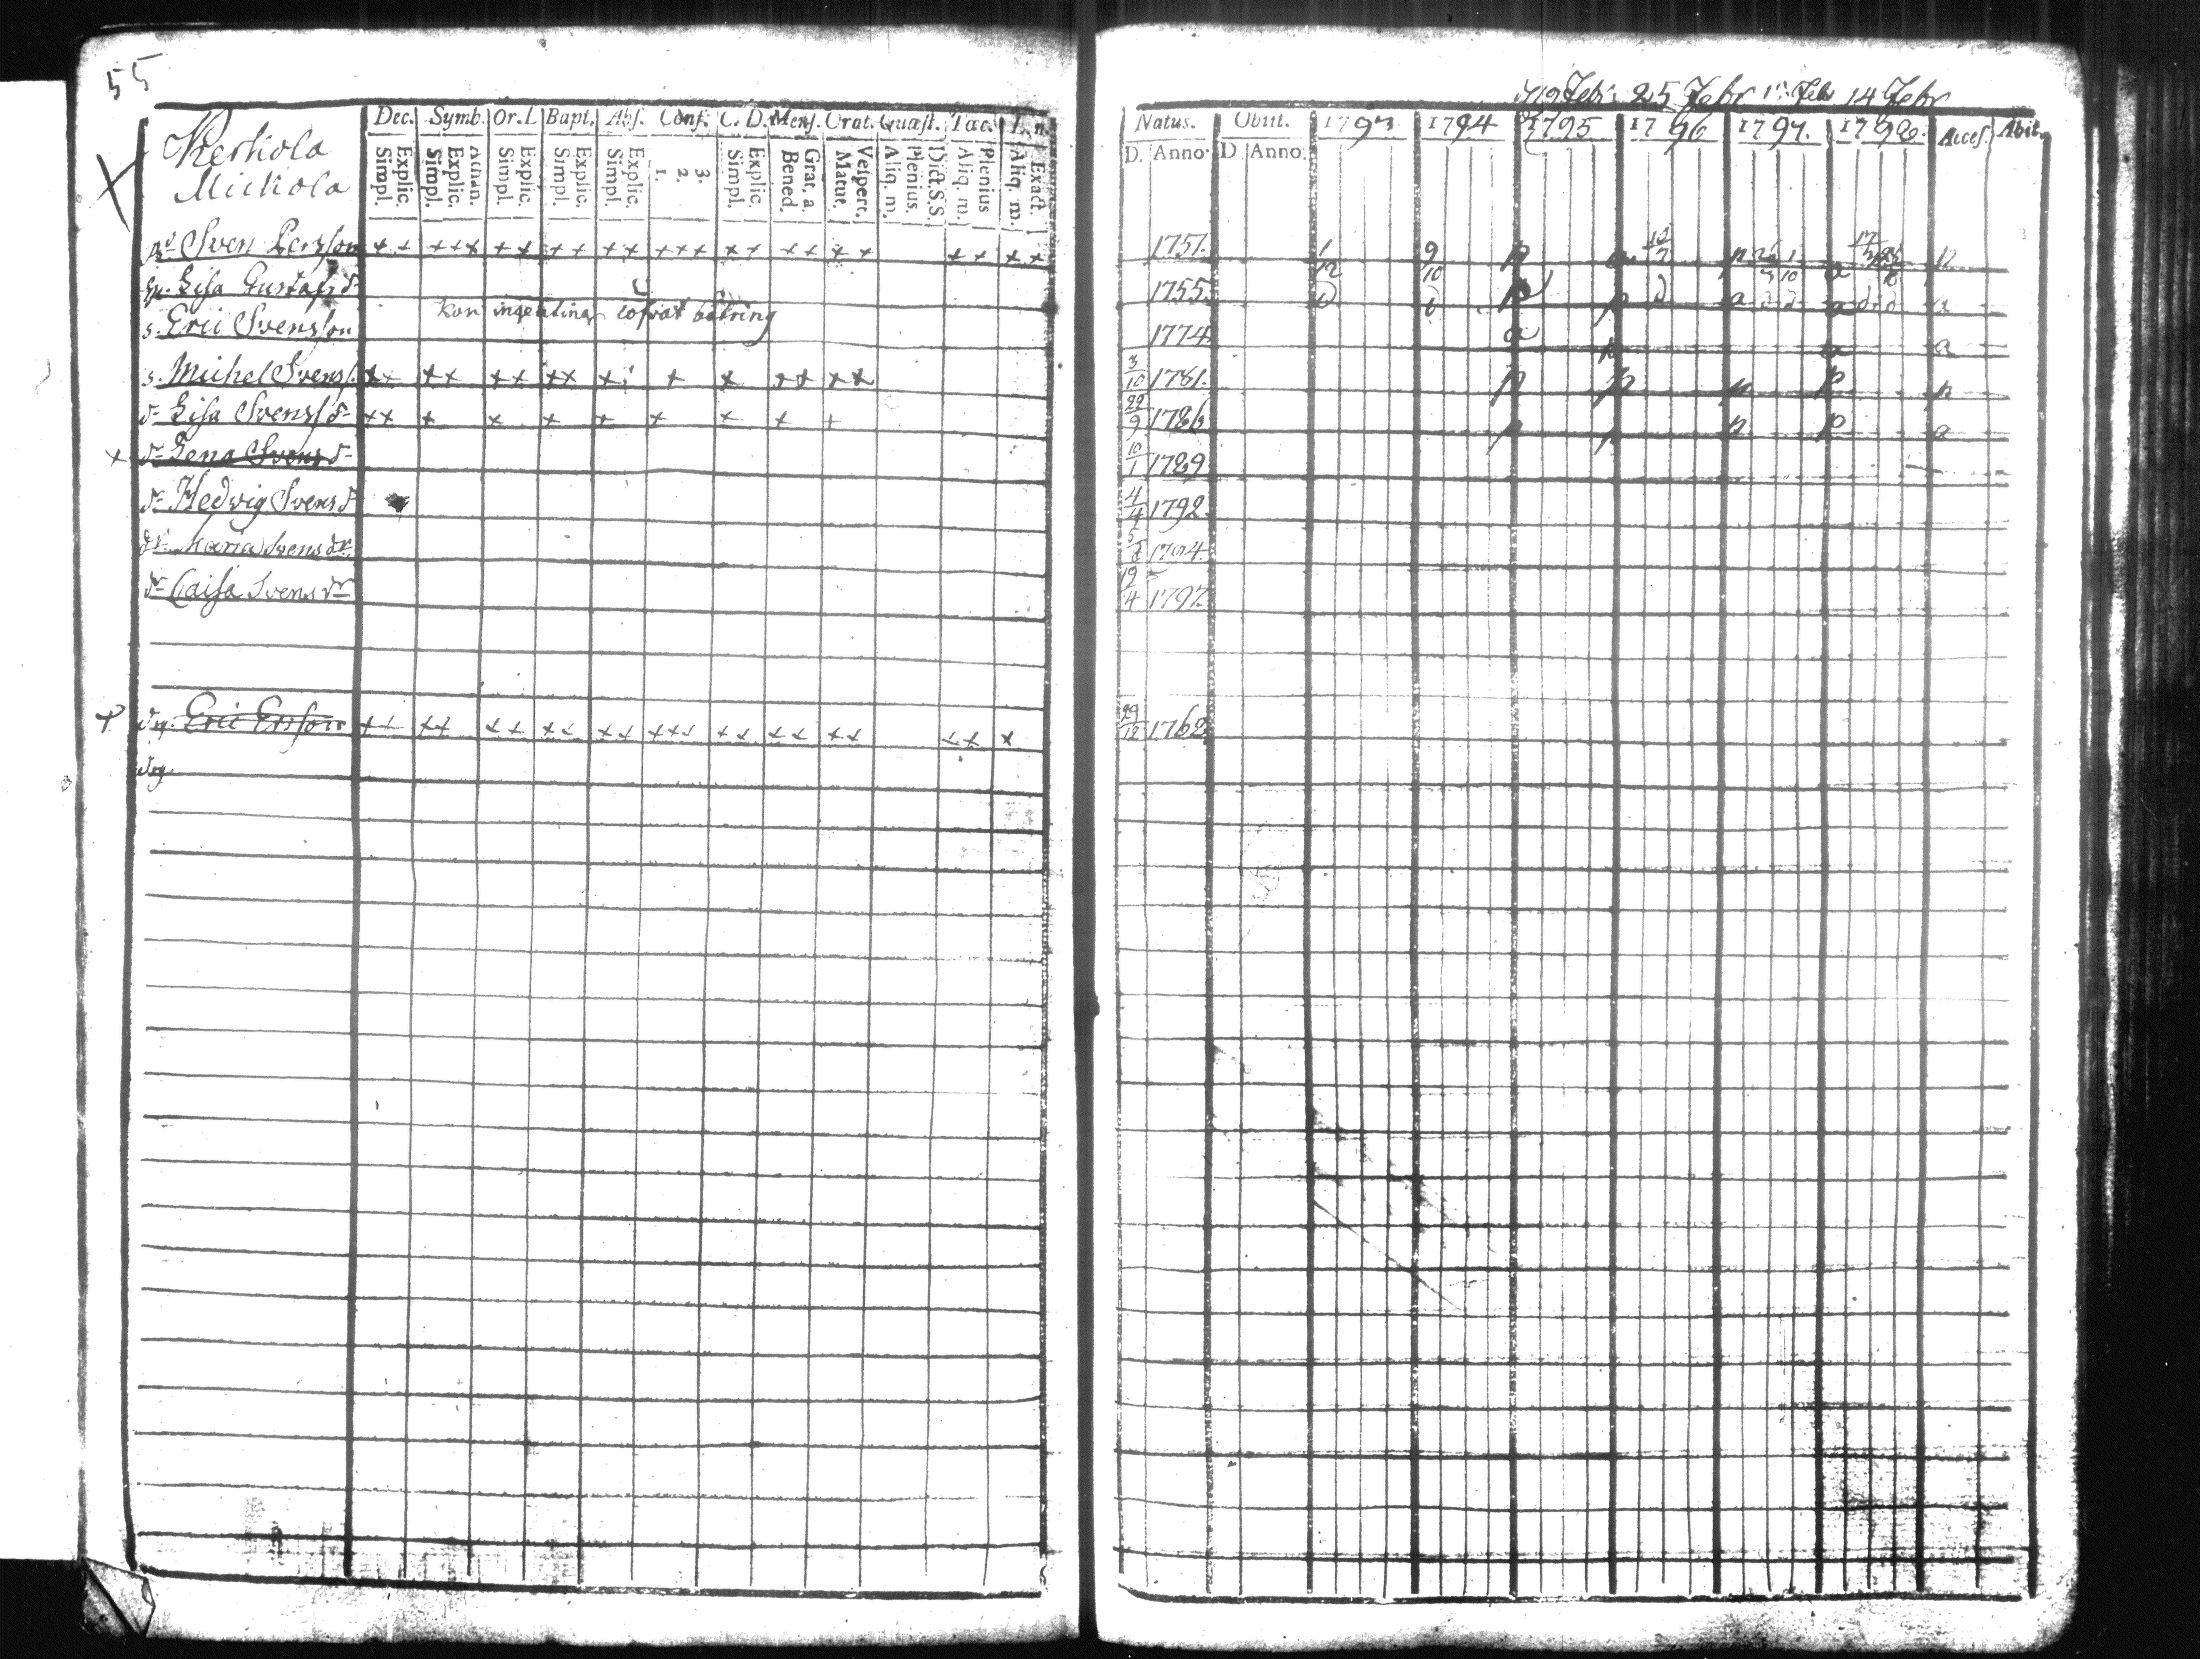 55
Dec. Symb. Or. L Bapt. Abs. Conf. C. D. Mens. Orat. Quæst. Tac. L. n.
Mickola
Simpl. Explic. Simpl. Explic. Athan. Simpl. Explic. Simpl. Explic. Simpl. Explic. 1. 2. 3. Simpl. Explic. Bened. Grat. a. Matut. Vespert. Aliq. m. Plenius. Dict. S.S. Aliq. m. Plenius Aliq. m. Exact.
Sven Persson + + + + + + + + + + + + + + + + + + + + + + + +
Lisa Gustafsd-
s. Eric Svensson kan ingenting lofvat bättring
s. Michel Svenss. + + + + + + + + + + + + + + + +
d- Lisa Svenssd- + + + + + + + + + +
+ d- Lena Svensd-
d- Hedvig Svensd
dr. Maria Svensdr.
d- Caisa Svensdr
+ dg. Eric Ersson + + + + + + + + + + + + + + + + + + + + + +
dg.
19 Febr. 25 Febr 1 Feb 14 Febr
Natus. Obiit. 1793 1794 1795 1796 1797. 1798. Acces. Abit.
D. Anno. D Anno.
1751. 1/12 9/10 p
1755.
1774 a p a a
3/10 1781. p p p p p
22/9 1786 p p p p a
10/1 1789
4/4 1792.
1794.
19/4 1797.
29/12 1762